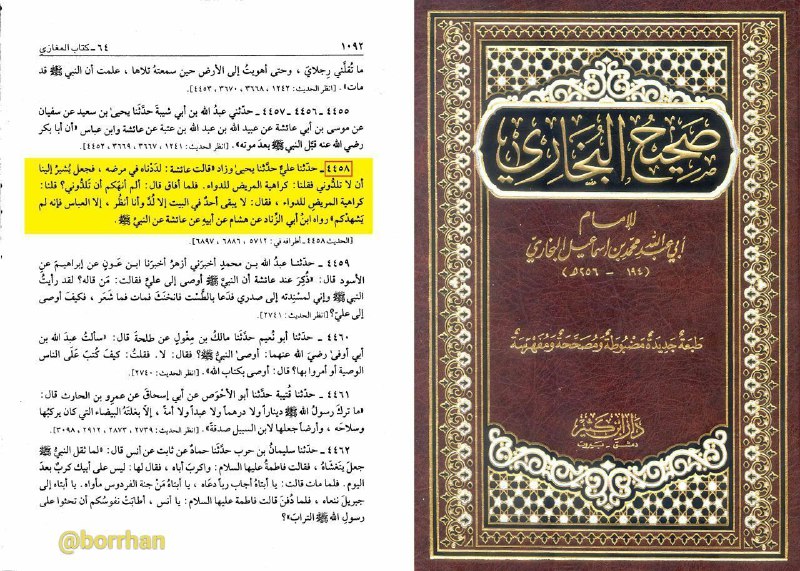 ١٠٩٢
٦٤ ـ كتاب المغازي
ما تُقلُّني رِجلايَ، وحتى أهويتُ إلى الأرض حين سمعتهُ تلاها، علمت أن النبيَّ ﷺ قد
مات». [انظر الحديث: ١٢٤٢، ٣٦٦٨، ٣٦٧٠، ٤٤٥٣].
٤٤٥٥ ـ ٤٤٥٦ ـ ٤٤٥٧ ـ حدثني عبدُ الله بن أبي شيبةَ حدَّثَنا يحيىٰ بن سعيد عن سفيان
عن موسى بن أبي عائشة عن عبيد الله بن عبد الله بن عتبة عن عائشة وابن عباس «أن أبا بكر
رضي الله عنه قَبَّل النبيَّ ﷺ بعدَ موته». [انظر الحديث: ١٢٤١، ٣٦٦٧، ٣٦٦٩، ٤٤٥٢].
٤٤٥٨ ـ حدَّثنا عليٌّ حدَّثَنا يحيىٰ وزاد «قالت عائشة: لدَدْناه في مرضه، فجعل يُشيرُ إلينا
أن لا تَلدُّوني فقلنا: كراهية المريض للدواء. فلما أفاق قال: ألم أنهَكم أن تَلدُّوني؟ قلنا:
كراهية المريض للدواء، فقال: لا يبقى أحدٌ في البيت إلا لُدَّ وأنا أنظُر، إلا العباسَ فإنه لم
يَشهدْكم» رواه ابنُ أبي الزِّناد عن هشام عن أبيهِ عن عائشة عن النبيِّ ﷺ.
[الحديث ٤٤٥٨ ـ أطرافه في: ٥٧١٢، ٦٨٨٦، ٦٨٩٧].
٤٤٥٩ ـ حدَّثنا عبدُ الله بن محمدٍ أخبرَني أزهرُ أخبرنا ابن عَونٍ عن إبراهيمَ عن
الأسود قال: «ذُكِرَ عند عائشة أن النبيَّ ﷺ أوصى إلى عليٍّ فقالت: مَن قاله؟ لقد رأيتُ
النبيَّ ﷺ وإني لمسْنِدته إلى صدري فدَعا بالطَّسْت فانخنَثَ فمات فما شَعَرتُ، فكيفَ أوصى
إلى عليّ؟». [انظر الحديث: ٢٧٤١].
٤٤٦٠ ـ حدَّثنا أبو نُعيم حدَّثنا مالكُ بن مِغْولٍ عن طلحةَ قال: «سألتُ عبدَ الله بن
أبي أوفىٰ رضيَ الله عنهما: أوصى النبيُّ ﷺ؟ فقال: لا. فقلتُ: كيفَ كُتبَ عَلَى الناس
الوصية أو أمِروا بها؟ قال: أوصى بكتاب الله». [انظر الحديث: ٢٧٤٠].
٤٤٦١ ـ حدَّثنا قُتيبة حدَّثنا أبو الأحْوَص عن أبي إسحاقَ عن عمرو بن الحارث قال:
«ما تركَ رسولُ الله ﷺ ديناراً ولا درهماً ولا عبداً ولا أمةً، إلاّ بغلتَهُ البيضاء التي كان يركبُها
وسلاحَه، وأرضاً جعلها لابن السبيل صدقةً». [انظر الحديث: ٢٧٣٩، ٢٨٧٣، ٢٩١٢، ٣٠٩٨].
٤٤٦٢ ـ حدَّثنا سليمانُ بن حرب حدَّثنا حمادٌ عن ثابت عن أنس قال: «لما ثَقل النبيُّ ﷺ
جعلَ يتغَشَّاهُ، فقالت فاطمةُ عليها السلام: واكربَ أباه، فقال لها: ليس على أبيكِ كربٌ بعدَ
اليوم. فلما مات قالت: يا أبتاهُ أجاب رباً دعاه، يا أبتاهُ مَنْ جنة الفردوسِ مأواه. يا أبتاه إلى
جبريلَ ننعاه، فلما دُفنَ قالت فاطمة عليها السلام: يا أنس، أطابَتْ نفوسُكم أن تَحثوا على
رسولِ الله ﷺ الترابَ»؟
@borrhan
صحيح البخاري
للإمام
أبي عبد الله محمد بن إسماعيل البخاري
(١٩٤ - ٢٥٦ هـ)
طبعة جديدة مضبوطة ومصححة ومفهرسة
دار ابن كثير
دمشق - بيروت